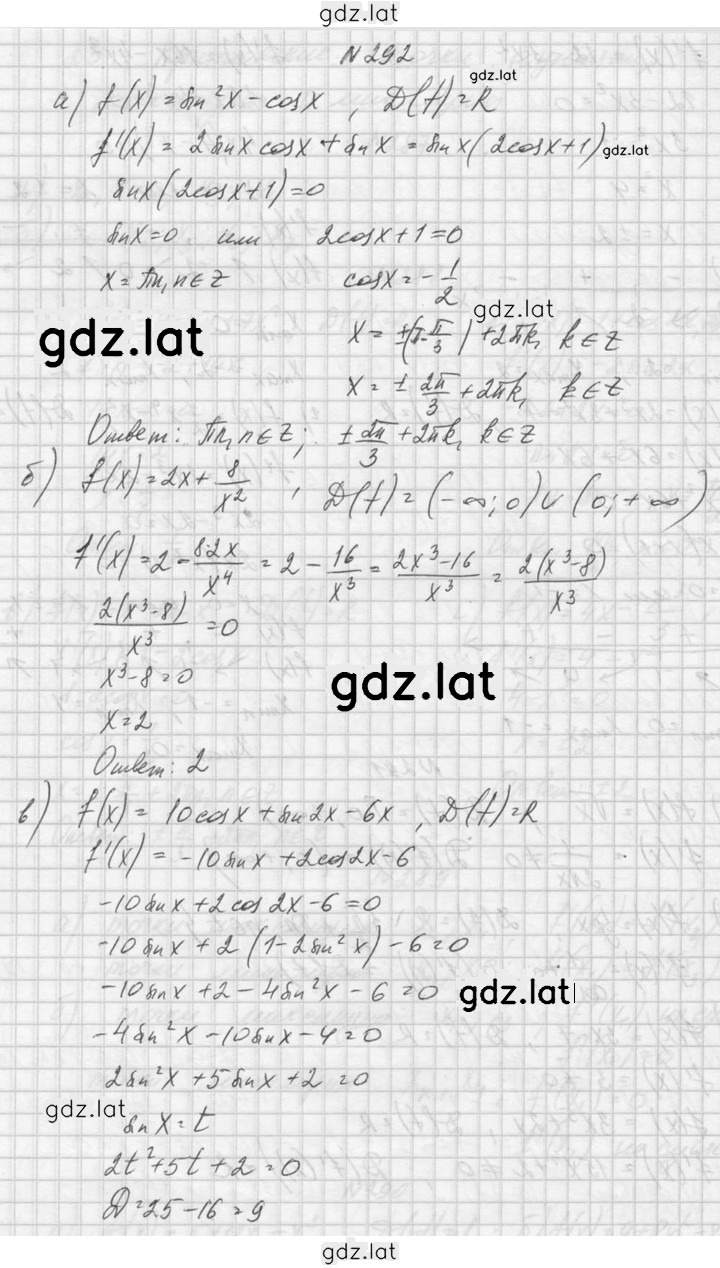 gdz.lat
N 292
gdz.lat
а) f(x) = sin²x - cosx , D(f) = R
f'(x) = 2 sinx cosx + sinx = sinx(2cosx+1) gdz.lat
sinx(2cosx+1) = 0
sinx = 0 или 2cosx + 1 = 0
x = πn, n ∈ Z cosx = - 1/2
gdz.lat
gdz.lat
x = ±(π - π/3) + 2πk, k ∈ Z
x = ± 2π/3 + 2πk, k ∈ Z
Ответ: πn, n ∈ Z; ± 2π/3 + 2πk, k ∈ Z
б) f(x) = 2x + 8/x² , D(f) = (-∞; 0) ∪ (0; +∞)
f'(x) = 2 - 8·2x/x⁴ = 2 - 16/x³ = 2x³-16/x³ = 2(x³-8)/x³
2(x³-8)/x³ = 0
x³ - 8 = 0
gdz.lat
x = 2
Ответ: 2
в) f(x) = 10cosx + sin2x - 6x , D(f) = R
f'(x) = -10sinx + 2cos2x - 6
-10sinx + 2cos2x - 6 = 0
-10sinx + 2(1-2sin²x) - 6 = 0
-10sinx + 2 - 4sin²x - 6 = 0 gdz.lat
-4sin²x - 10sinx - 4 = 0
2sin²x + 5sinx + 2 = 0
gdz.lat
sinx = t
2t² + 5t + 2 = 0
D = 25 - 16 = 9
gdz.lat